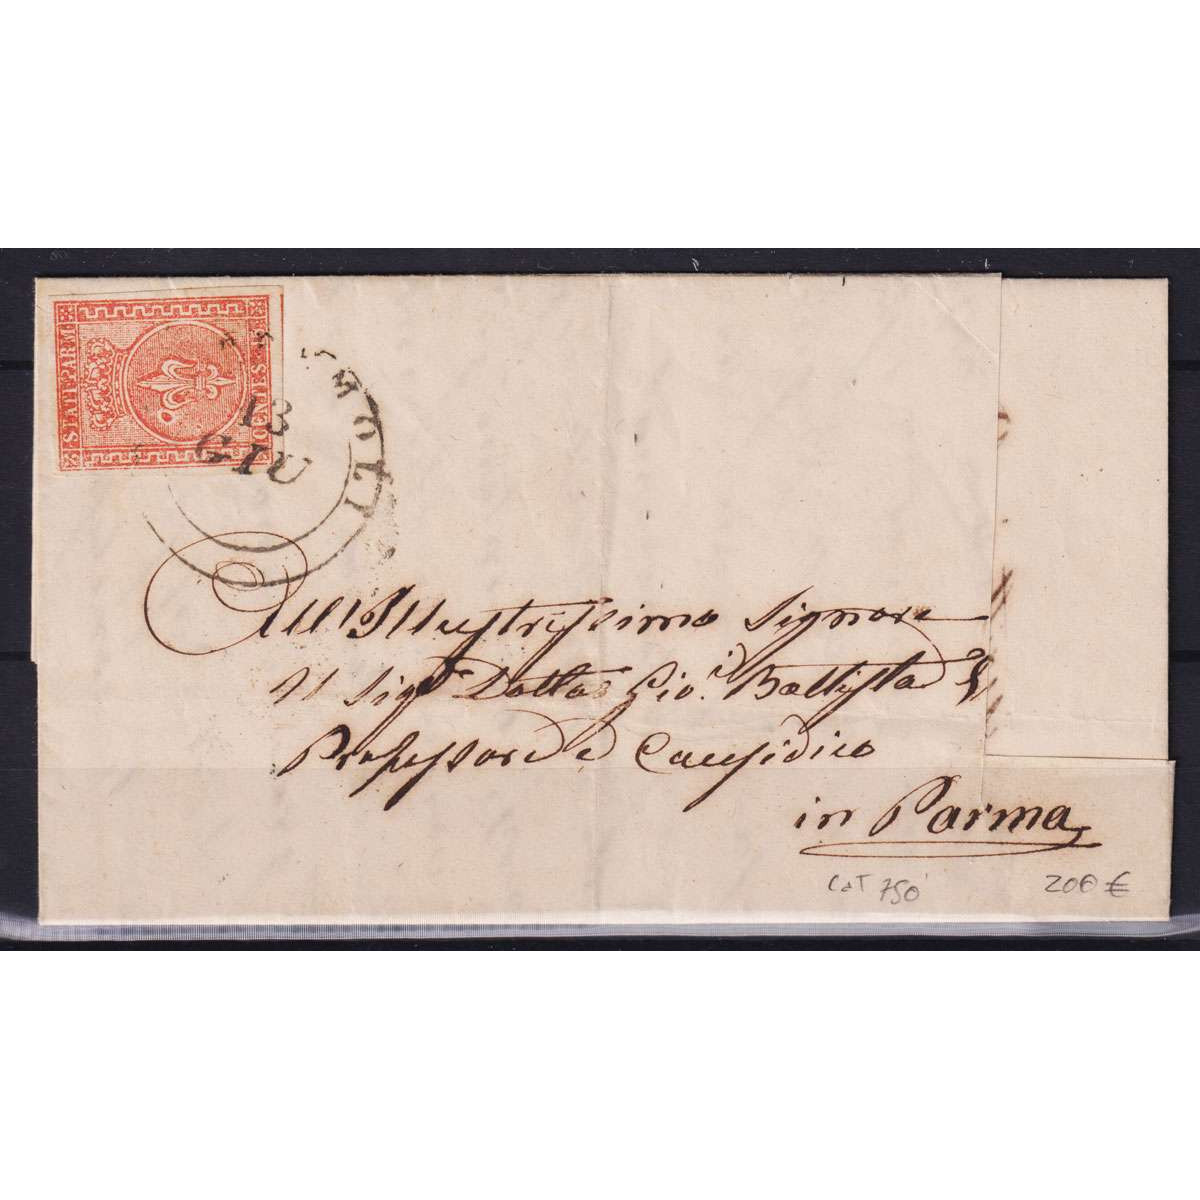 STATI PARM
CENTES
13
GIU
All'Illustrissimo Signore
Il Sigr Dotto Gio. Battista
Professore e Causidico
in Parma
CAT 750
200 €